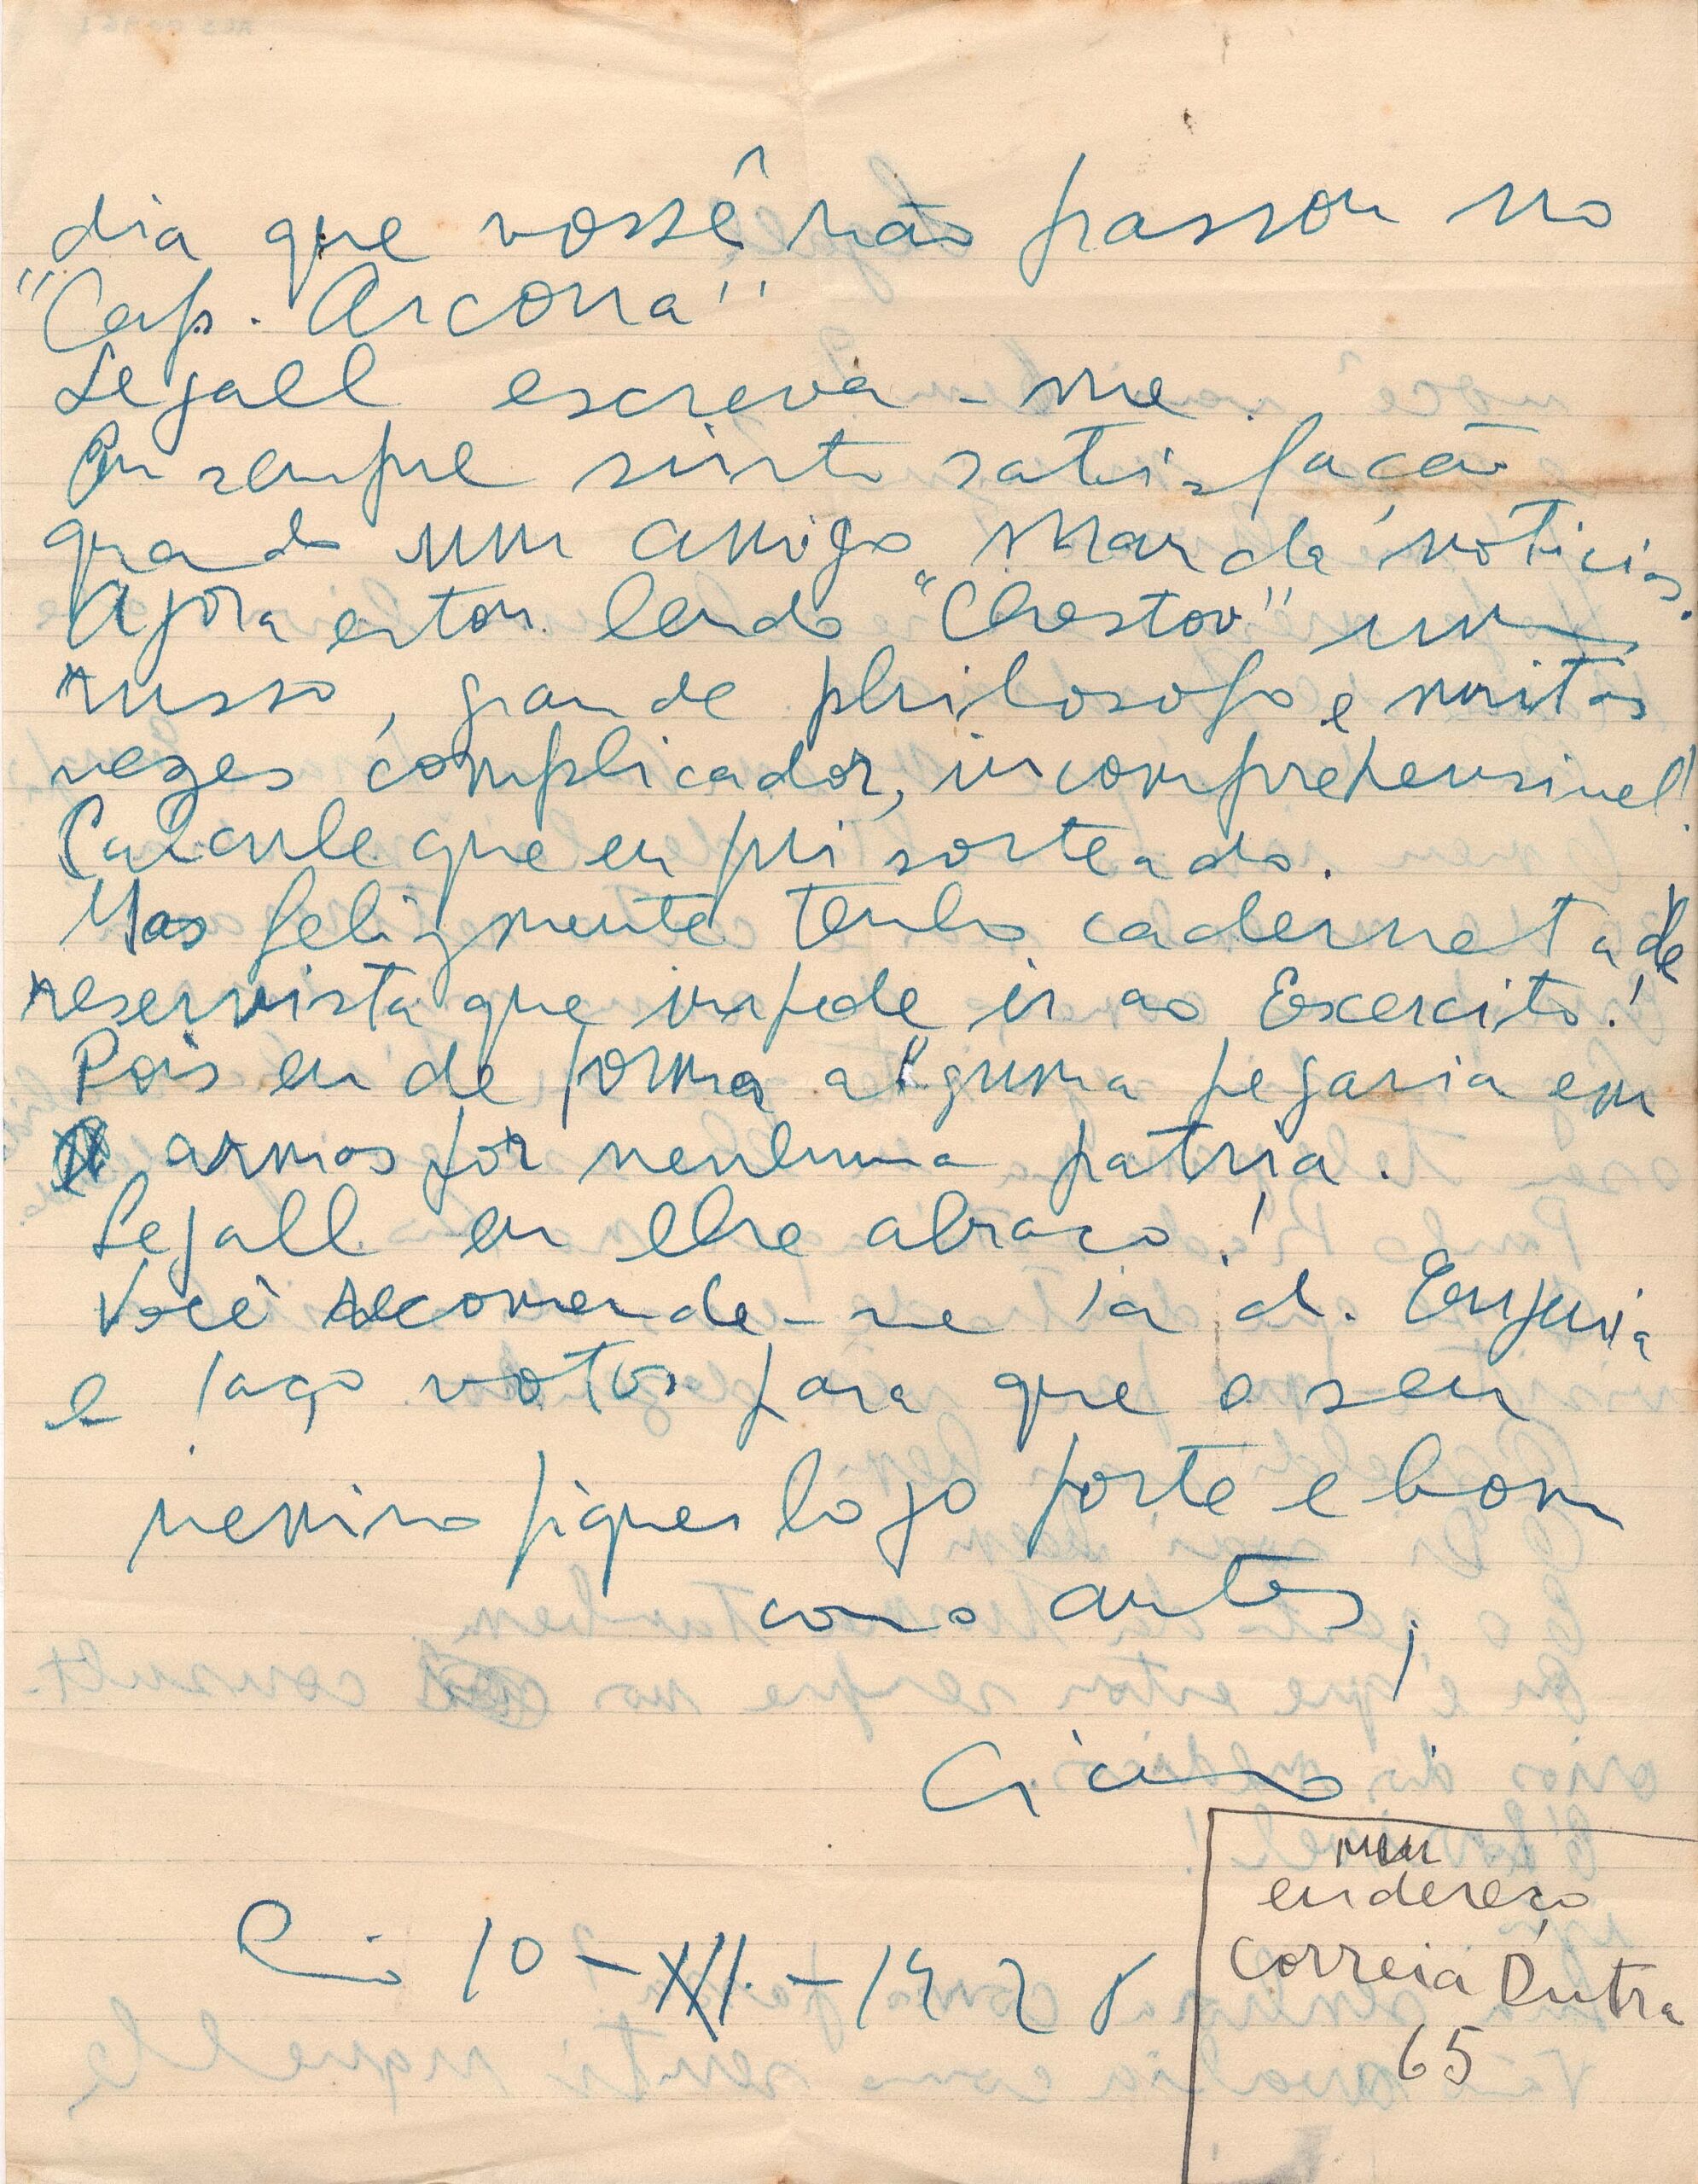 dia que vossê não passou no
"Cap. Arcona"
Segall escreva-me.
Eu sempre sinto satisfação
quando um amigo manda noticias.
Agora estou lendo "Chestov" um
russo, grande philosofo e muitas
vezes complicador, incomprehensivel!
Calcule que eu fui sorteado.
Mas felizmente tenho caderneta de
reservista que impede ir ao Exercito!
Pois eu de forma alguma pegaria em
armas por nenhuma patria.
Segall eu lhe abraço!
Você recomende-me á d. Eugenia
e faço votos para que o seu
menino fique logo forte e bom
como antes,
Cicero
Rio 10-XII-1928
meu
endereço
Correia Dutra
65